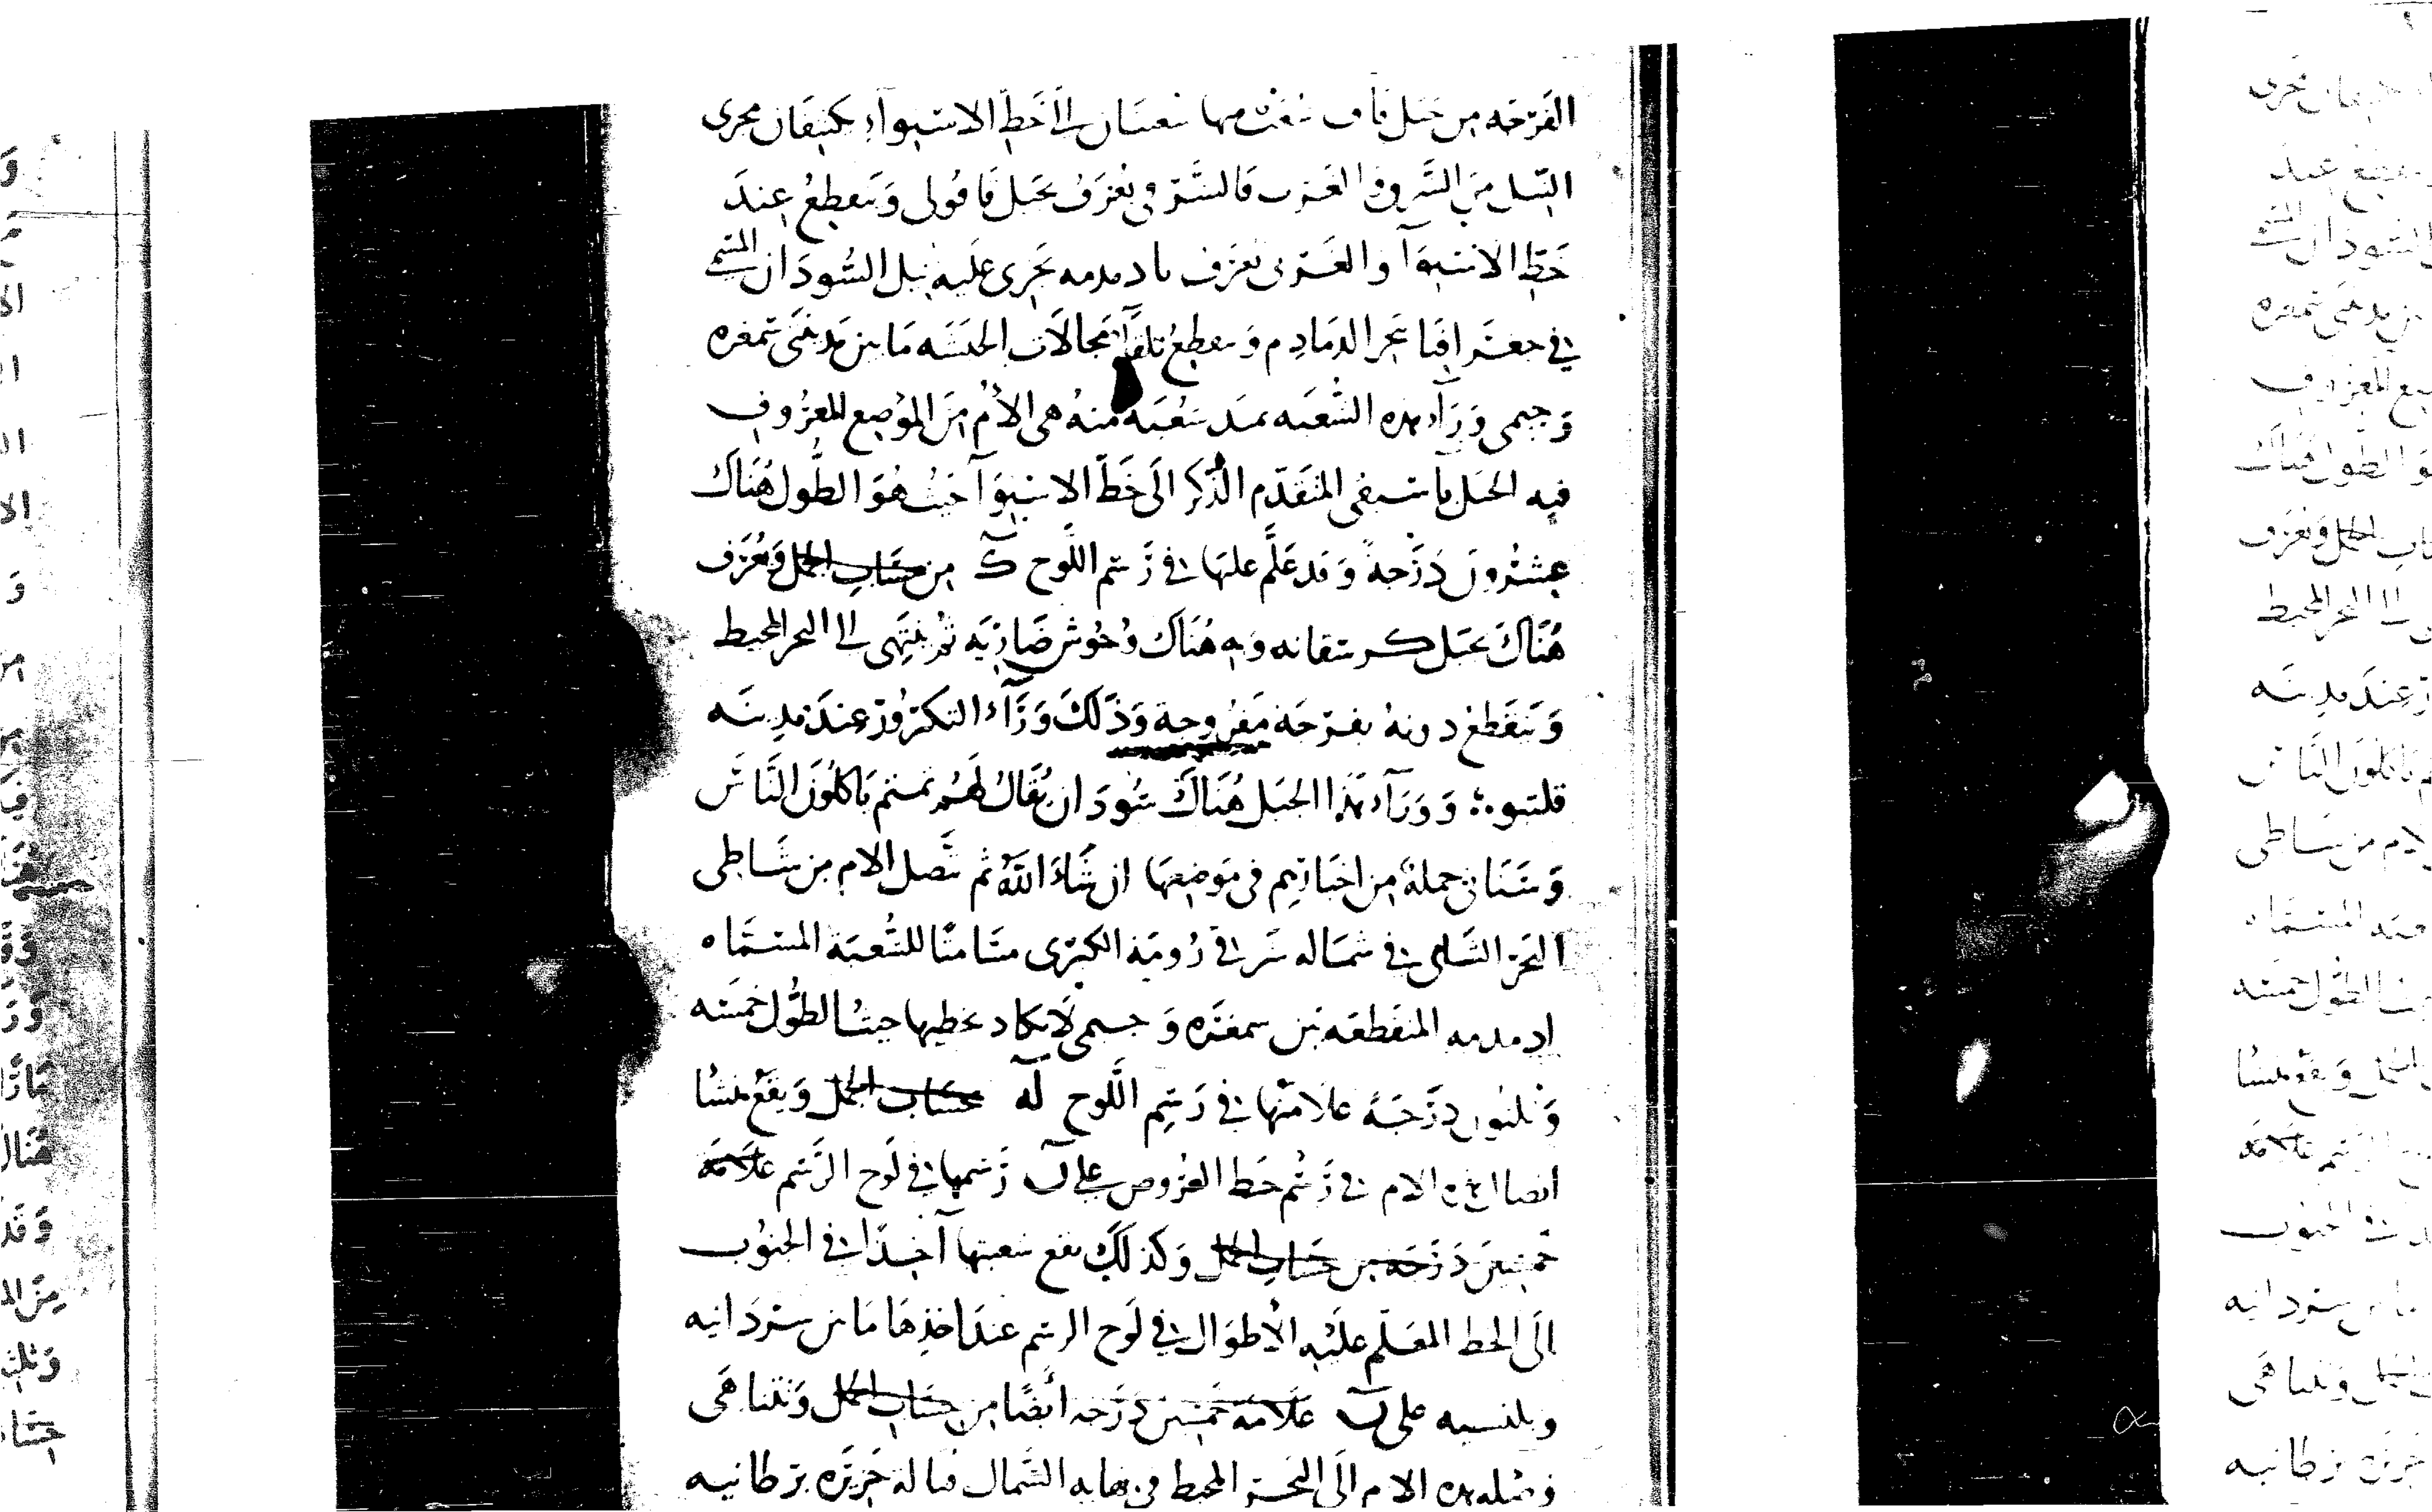 الفرجه من جبل قاف شعبت منها شعبتان الى خط الاستوآء يكتنفان مجرى
النيل من الشرق والغرب فالشرقي يعرف بجبل قاقولى وينقطع عند
خط الاستوآ والغربى يعرف بادمدمه يجرى عليه نيل السودان المسمى
في جغرافيا بحر الدمادم وينقطع تلقآ مجالات الحبشه ما بين مدينتى سمغره
وجيمى ورآء هذه الشعبه تمتد شعبة منه هى الأم من الموضع المعروف
فيه الجبل باسيفى المتقدم الذكر الى خط الاستوآ حيث هو الطول هناك
عشرون درجة وقد علم عليها في رسم اللوح ك من حساب الجمل ويعرف
هناك بجبل كرسقانه وبه هناك وحوش ضاريه ثم ينتهى الى البحر المحيط
وينقطع دونه بفرجة مفروجة وذلك ورآء التكرور عند مدينه
قلتبو ووراء هذا الجبل هناك سودان يقال لهم نمنم ياكلون الناس
وسياتى جملة من اخبارهم في موضعها ان شاء الله ثم تتصل الام من شاطى
البحر الشامى في شماله شرقي رومية الكبرى مسامتا للشعبة المسماه
ادمدمه المنقطعه بين سمغره وجيمى لا يكاد يخطيها حيث الطول خمسه
وثلثون درجة علامتها في رسم اللوح له بحساب الجمل ويقع منشا
اتصال هذه الام في رسم خط العروض على ن رسمها في لوح الرسم علامة
خمسين درجه من حساب الجمل وكذلك يقع شعبتها آخذا في الجنوب
الى الخط المعلم عليه الأطوال في لوح الرسم عند اخذها ما بين سردانيه
وبلنسيه على ن علامة خمسين درجه أيضا من حساب الجمل وتتناهى
وصله هذه الام الى البحر المحيط في نهايه الشمال قباله جزيره برطانيه